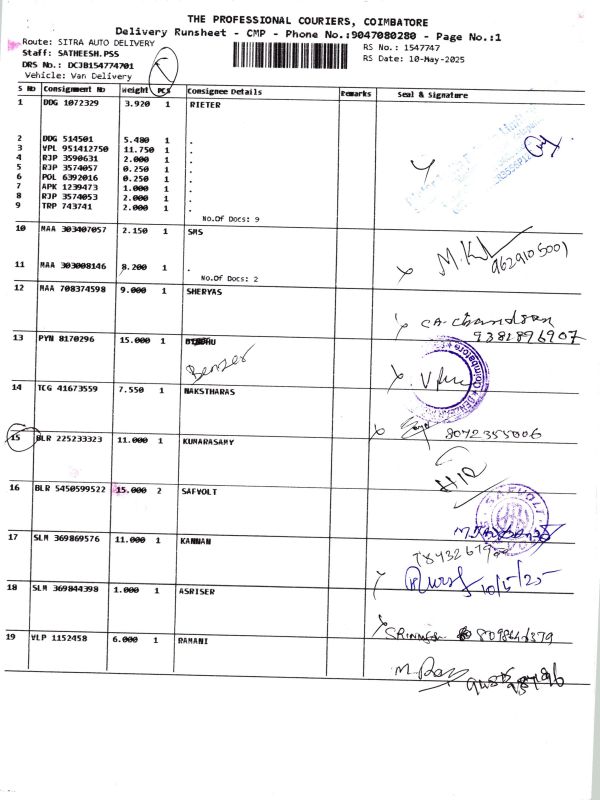 THE PROFESSIONAL COURIERS, COIMBATORE
Delivery Runsheet - CMP - Phone No.:9047080280 - Page No.:1
Route: SITRA AUTO DELIVERY
RS No.: 1547747
Staff: SATHEESH.PSS
RS Date: 10-May-2025
DRS No.: DCJB154774701
Vehicle: Van Delivery
S No Consignment No Weight PCS Consignee Details Remarks Seal & Signature
1 DDG 1072329 3.920 1 RIETER
2 DDG 514501 5.480 1 .
3 VPL 951412750 11.750 1 .
4 RJP 3590631 2.000 1 .
5 RJP 3574057 0.250 1 .
6 POL 6392016 0.250 1 .
7 APK 1239473 1.000 1 .
8 RJP 3574053 2.000 1 .
9 TRP 743741 2.000 1 .
No.Of Docs: 9
10 MAA 303407057 2.150 1 SMS
M.K
9629105001
11 MAA 303008146 8.200 1 .
No.Of Docs: 2
12 MAA 708374598 9.000 1 SHERYAS
CA-Chandran
9381896907
13 PYN 8170296 15.000 1
Benzer
14 TCG 41673559 7.550 1 NAKSTHARAS
8072355006
15 BLR 225233323 11.000 1 KUMARASAMY
16 BLR 5450599522 15.000 2 SAFVOLT
SAFVOLT
17 SLM 369869576 11.000 1 KANNAN
10/5/25
18 SLM 369844398 1.000 1 ASRISER
19 VLP 1152458 6.000 1 RAMANI